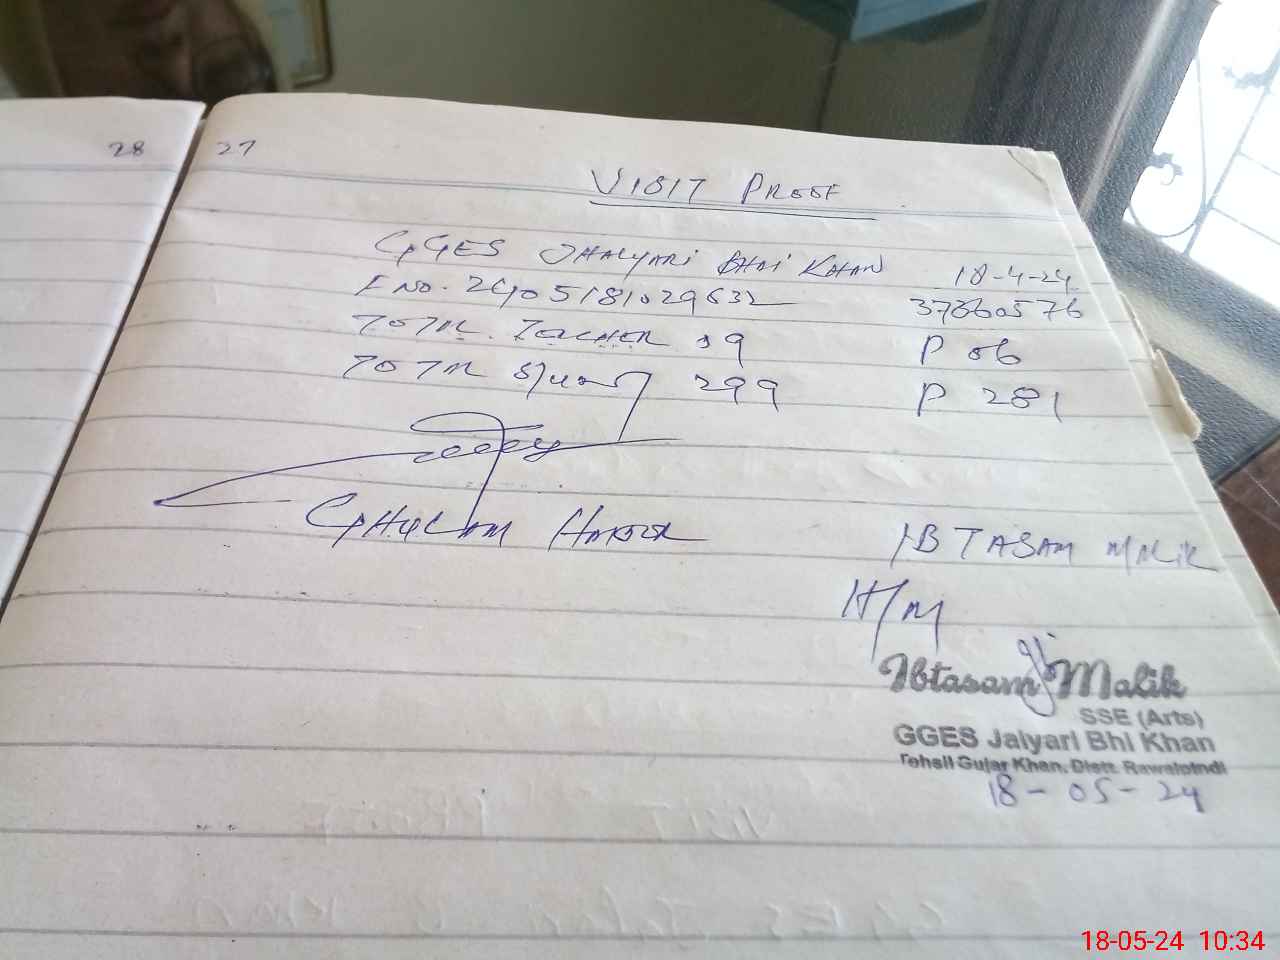 28
27
VISIT PROOF
GGES JHALYARI BHAI KHAN 18-4-24
37360576
TOTAL TEACHER 09 P 06
TOTAL 299 P 281
GHULAM
IBTASAM MALIK
H/M
Ibtasam Malik
SSE (Arts)
GGES Jalyari Bhi Khan
Tehsil Gujar Khan, Distt. Rawalpindi
18-05-24
18-05-24 10:34